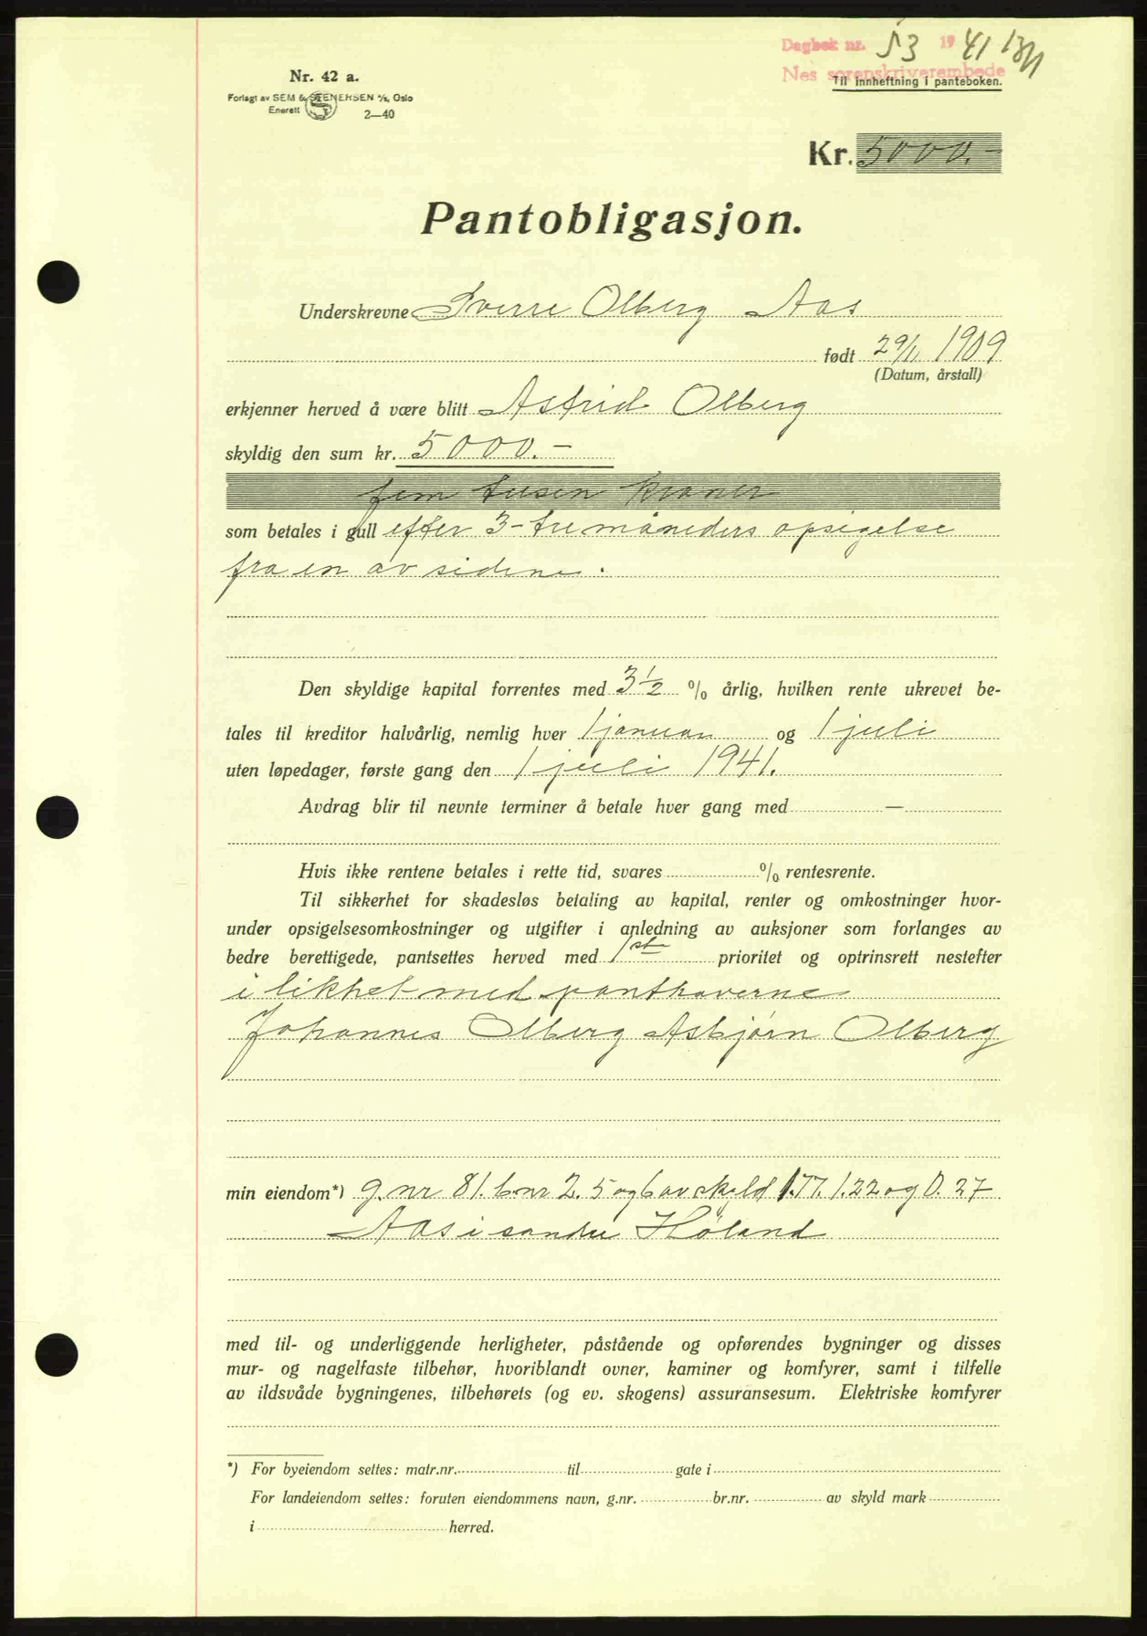 Dagbok nr. 53 1941
Nes sorenskriverembede
Nr. 42 a.
Til innheftning i panteboken.
Forlagt av SEM & STENERSEN A/S, Oslo
Enerett 2—40
Kr. 5000.-
Pantobligasjon.
Underskrevne Sverre Olberg Aas
født 29/11 1909
(Datum, årstall)
erkjenner herved å være blitt Astrid Olberg
skyldig den sum kr. 5000.-
fem tusen kroner
som betales i gull efter 3-tre måneders opsigelse
fra en av sidene.
Den skyldige kapital forrentes med 3 1/2 % årlig, hvilken rente ukrevet be-
tales til kreditor halvårlig, nemlig hver 1 januar og 1 juli
uten løpedager, første gang den 1 juli 1941.
Avdrag blir til nevnte terminer å betale hver gang med —
Hvis ikke rentene betales i rette tid, svares % rentesrente.
Til sikkerhet for skadesløs betaling av kapital, renter og omkostninger hvor-
under opsigelsesomkostninger og utgifter i anledning av auksjoner som forlanges av
bedre berettigede, pantsettes herved med 1ste prioritet og optrinsrett nestefter
i likhet med panthaverne
Johannes Olberg Asbjørn Olberg
min eiendom*) g.nr 81. b.nr 2. 5 og 6 av skyld 1.77. 1.22 og 0.27
Aas i søndre Høland
med til- og underliggende herligheter, påstående og opførendes bygninger og disses
mur- og nagelfaste tilbehør, hvoriblandt ovner, kaminer og komfyrer, samt i tilfelle
av ildsvåde bygningenes, tilbehørets (og ev. skogens) assuransesum. Elektriske komfyrer
*) For byeiendom settes: matr.nr. til gate i
For landeiendom settes: foruten eiendommens navn, g.nr. br.nr. av skyld mark
i herred.